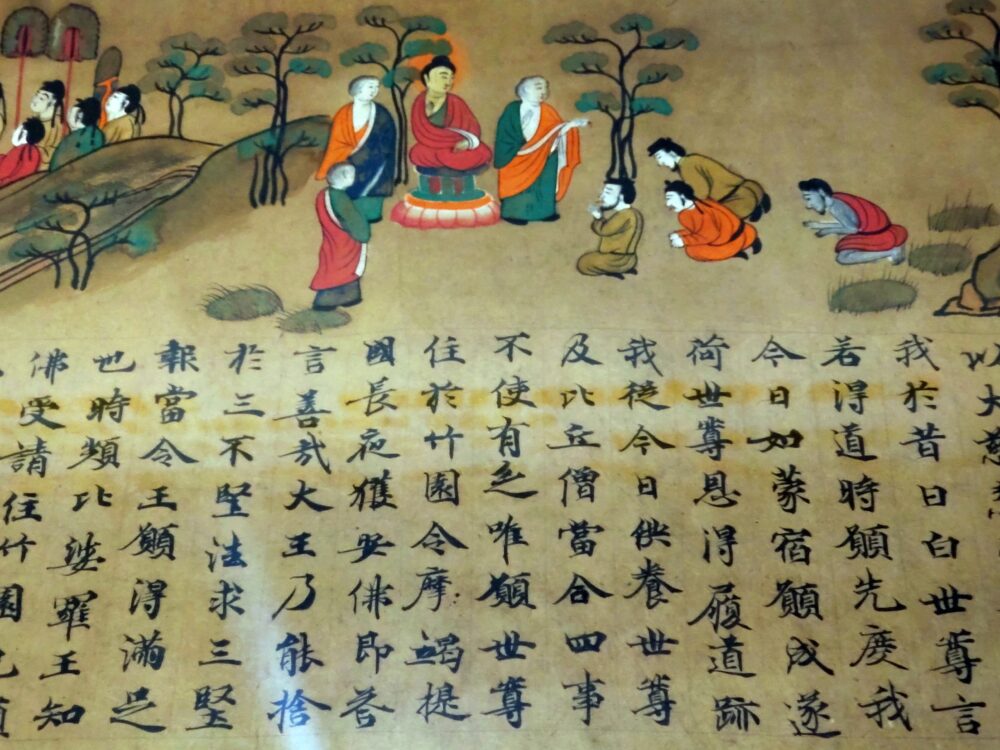 以大慈
我於昔日白世尊言
若得道時願先度我
今日如蒙宿願成遂
荷世尊恩得履道跡
我從今日供養世尊
及比丘僧當合四事
不使有乏唯願世尊
住於竹園令摩竭提
國長夜獲安佛即答
言善哉大王乃能捨
於三不堅法求三堅
報當令王願得滿足
也時頻比娑羅王知
佛受請住竹園已